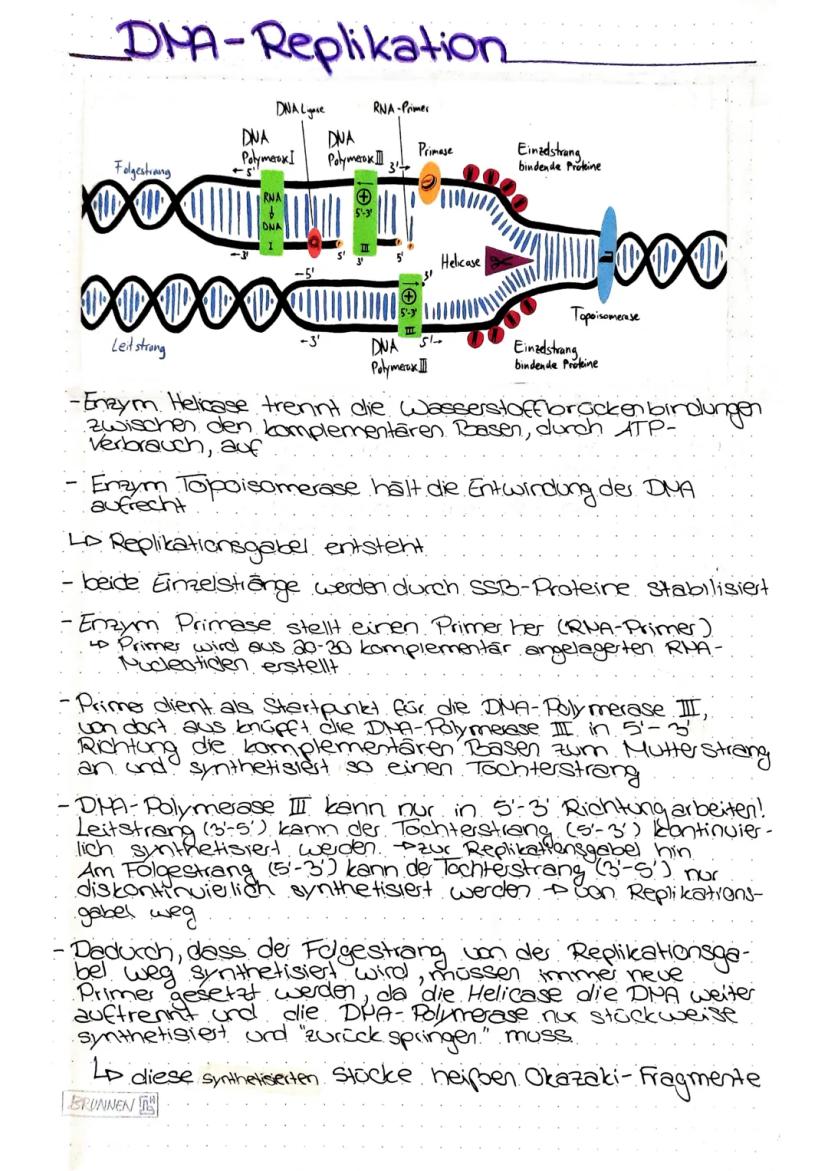 DNA-Replikation
DNA Ligase
RNA-Primer
DNA
Polymerase I
DNA
Polymerase III
Primase
Einzelstrang
bindende Proteine
Folgestrang
5'
3'
RNA
DNA
I
5'-3'
III
3'
5'
3'
5'
Helicase
5'
3'
5'-3'
III
3'
5'
Topoisomerase
Leitstrang
DNA
Polymerase III
Einzelstrang
bindende Proteine
- Enzym Helicase trennt die Wasserstoffbrückenbindungen
zwischen den komplementären Basen, durch ATP-
Verbrauch, auf
- Enzym Topoisomerase hält die Entwindung der DNA
aufrecht
↳ Replikationsgabel entsteht
- beide Einzelstränge werden durch SSB-Proteine stabilisiert
- Enzym Primase stellt einen Primer her (RNA-Primer)
↳ Primer wird aus 20-30 komplementär angelagerten RNA-
Nucleotiden erstellt
- Primer dient als Startpunkt für die DNA-Polymerase III,
von dort aus knüpft die DNA-Polymerase III in 5'-3'
Richtung die komplementären Basen zum Mutterstrang
an und synthetisiert so einen Tochterstrang
- DNA-Polymerase III kann nur in 5'-3' Richtung arbeiten!
Leitstrang (3'-5') kann der Tochterstrang (5'-3') kontinuier-
lich synthetisiert werden. → zur Replikationsgabel hin
Am Folgestrang (5'-3') kann der Tochterstrang (3'-5') nur
diskontinuierlich synthetisiert werden → von Replikations-
gabel weg
- Dadurch, dass der Folgestrang von der Replikationsga-
bel weg synthetisiert wird, müssen immer neue
Primer gesetzt werden, da die Helicase die DNA weiter
auftrennt und die DNA-Polymerase nur stückweise
synthetisiert und "zurück springen" muss.
↳ diese synthetisierten Stücke heißen Okazaki-Fragmente
BRUNNEN